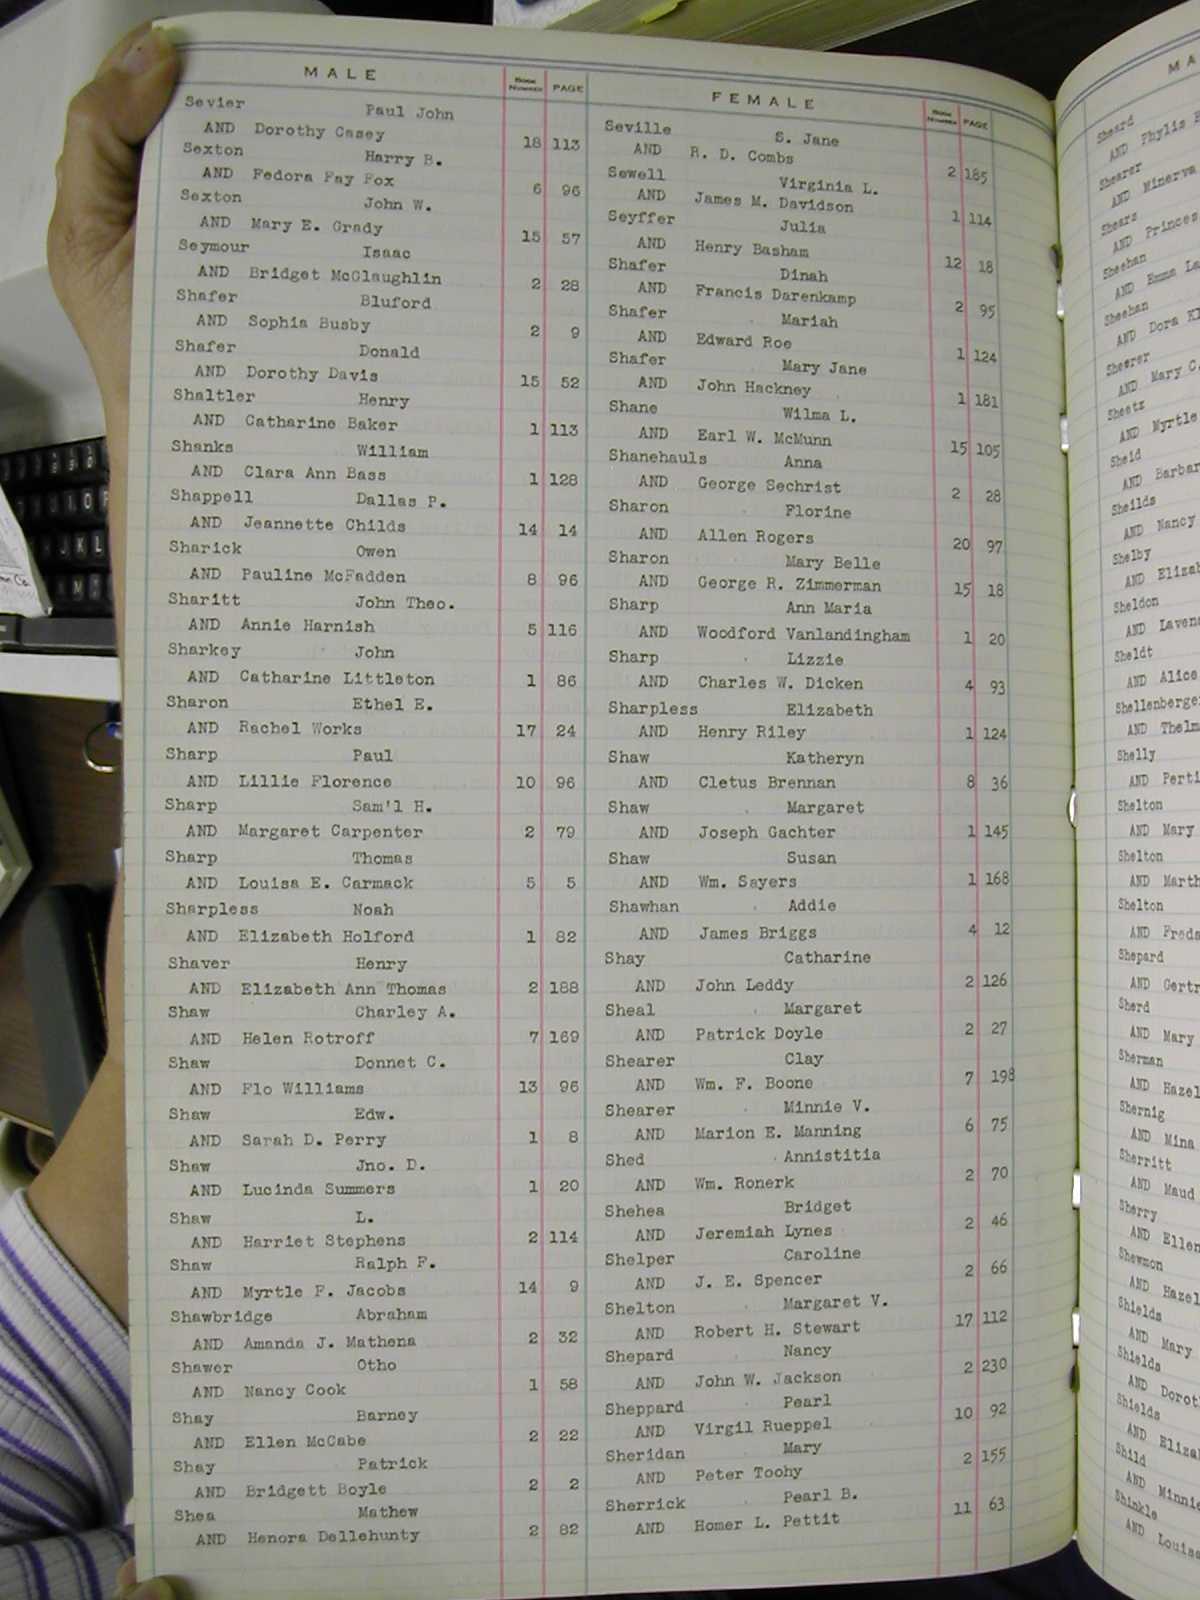 MALE BOOK NUMBER PAGE
Sevier Paul John
AND Dorothy Casey 18 113
Sexton Harry B.
AND Fedora Fay Fox 6 96
Sexton John W.
AND Mary E. Grady 15 57
Seymour Isaac
AND Bridget McGlaughlin 2 28
Shafer Bluford
AND Sophia Busby 2 9
Shafer Donald
AND Dorothy Davis 15 52
Shaltler Henry
AND Catharine Baker 1 113
Shanks William
AND Clara Ann Bass 1 128
Shappell Dallas P.
AND Jeannette Childs 14 14
Sharick Owen
AND Pauline McFadden 8 96
Sharitt John Theo.
AND Annie Harnish 5 116
Sharkey John
AND Catharine Littleton 1 86
Sharon Ethel E.
AND Rachel Works 17 24
Sharp Paul
AND Lillie Florence 10 96
Sharp Sam'l H.
AND Margaret Carpenter 2 79
Sharp Thomas
AND Louisa E. Carmack 5 5
Sharpless Noah
AND Elizabeth Holford 1 82
Shaver Henry
AND Elizabeth Ann Thomas 2 188
Shaw Charley A.
AND Helen Rotroff 7 169
Shaw Donnet C.
AND Flo Williams 13 96
Shaw Edw.
AND Sarah D. Perry 1 8
Shaw Jno. D.
AND Lucinda Summers 1 20
Shaw L.
AND Harriet Stephens 2 114
Shaw Ralph F.
AND Myrtle F. Jacobs 14 9
Shawbridge Abraham
AND Amanda J. Mathena 2 32
Shawer Otho
AND Nancy Cook 1 58
Shay Barney
AND Ellen McCabe 2 22
Shay Patrick
AND Bridgett Boyle 2 2
Shea Mathew
AND Henora Dellehunty 2 82
FEMALE BOOK NUMBER PAGE
Seville S. Jane
AND R. D. Combs 2 185
Sewell Virginia L.
AND James M. Davidson 1 114
Seyffer Julia
AND Henry Basham 12 18
Shafer Dinah
AND Francis Darenkamp 2 95
Shafer Mariah
AND Edward Roe 1 124
Shafer Mary Jane
AND John Hackney 1 181
Shane Wilma L.
AND Earl W. McMunn 15 105
Shanehauls Anna
AND George Sechrist 2 28
Sharon Florine
AND Allen Rogers 20 97
Sharon Mary Belle
AND George R. Zimmerman 15 18
Sharp Ann Maria
AND Woodford Vanlandingham 1 20
Sharp Lizzie
AND Charles W. Dicken 4 93
Sharpless Elizabeth
AND Henry Riley 1 124
Shaw Katheryn
AND Cletus Brennan 8 36
Shaw Margaret
AND Joseph Gachter 1 145
Shaw Susan
AND Wm. Sayers 1 168
Shawhan Addie
AND James Briggs 4 12
Shay Catharine
AND John Leddy 2 126
Sheal Margaret
AND Patrick Doyle 2 27
Shearer Clay
AND Wm. F. Boone 7 198
Shearer Minnie V.
AND Marion E. Manning 6 75
Shed Annistitia
AND Wm. Ronerk 2 70
Shehea Bridget
AND Jeremiah Lynes 2 46
Shelper Caroline
AND J. E. Spencer 2 66
Shelton Margaret V.
AND Robert H. Stewart 17 112
Shepard Nancy
AND John W. Jackson 2 230
Sheppard Pearl
AND Virgil Rueppel 10 92
Sheridan Mary
AND Peter Toohy 2 155
Sherrick Pearl B.
AND Homer L. Pettit 11 63
MA
Sheard
AND Phylis
Shearer
AND Minerva
Shears
AND Princes
Sheehan
AND Emma
Sheehan
AND Dora
Sheerer
AND Mary C.
Sheetz
AND Myrtle
Sheid
AND Barbar
Sheilds
AND Nancy
Shelby
AND Elizab
Sheldon
AND Laven
Sheldt
AND Alice
Shellenberge
AND Thelm
Shelly
AND Perti
Shelton
AND Mary
Shelton
AND Marth
Shelton
AND Freda
Shepard
AND Gertr
Sherd
AND Mary
Sherman
AND Hazel
Shernig
AND Mina
Sherritt
AND Maud
Sherry
AND Ellen
Shewmon
AND Hazel
Shields
AND Mary
Shields
AND Dorot
Shields
AND Eliza
Shild
AND Minnie
Shinkle
AND Louise